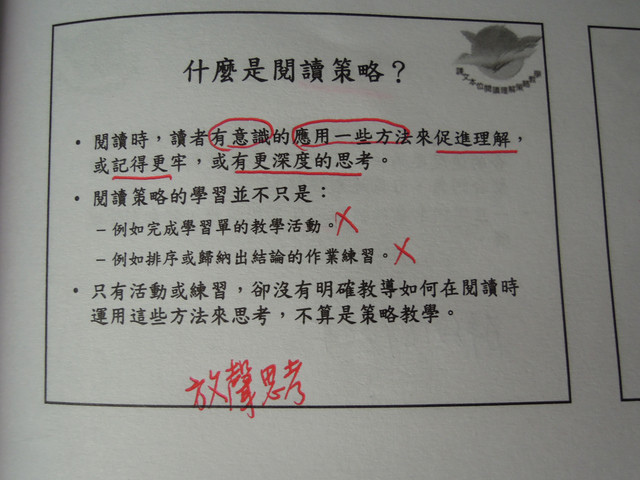 什麼是閱讀策略？
• 閱讀時，讀者有意識的應用一些方法來促進理解，
或記得更牢，或有更深度的思考。
• 閱讀策略的學習並不只是：
–例如完成學習單的教學活動。
–例如排序或歸納出結論的作業練習。
• 只有活動或練習，卻沒有明確教導如何在閱讀時
運用這些方法來思考，不算是策略教學。
放聲思考